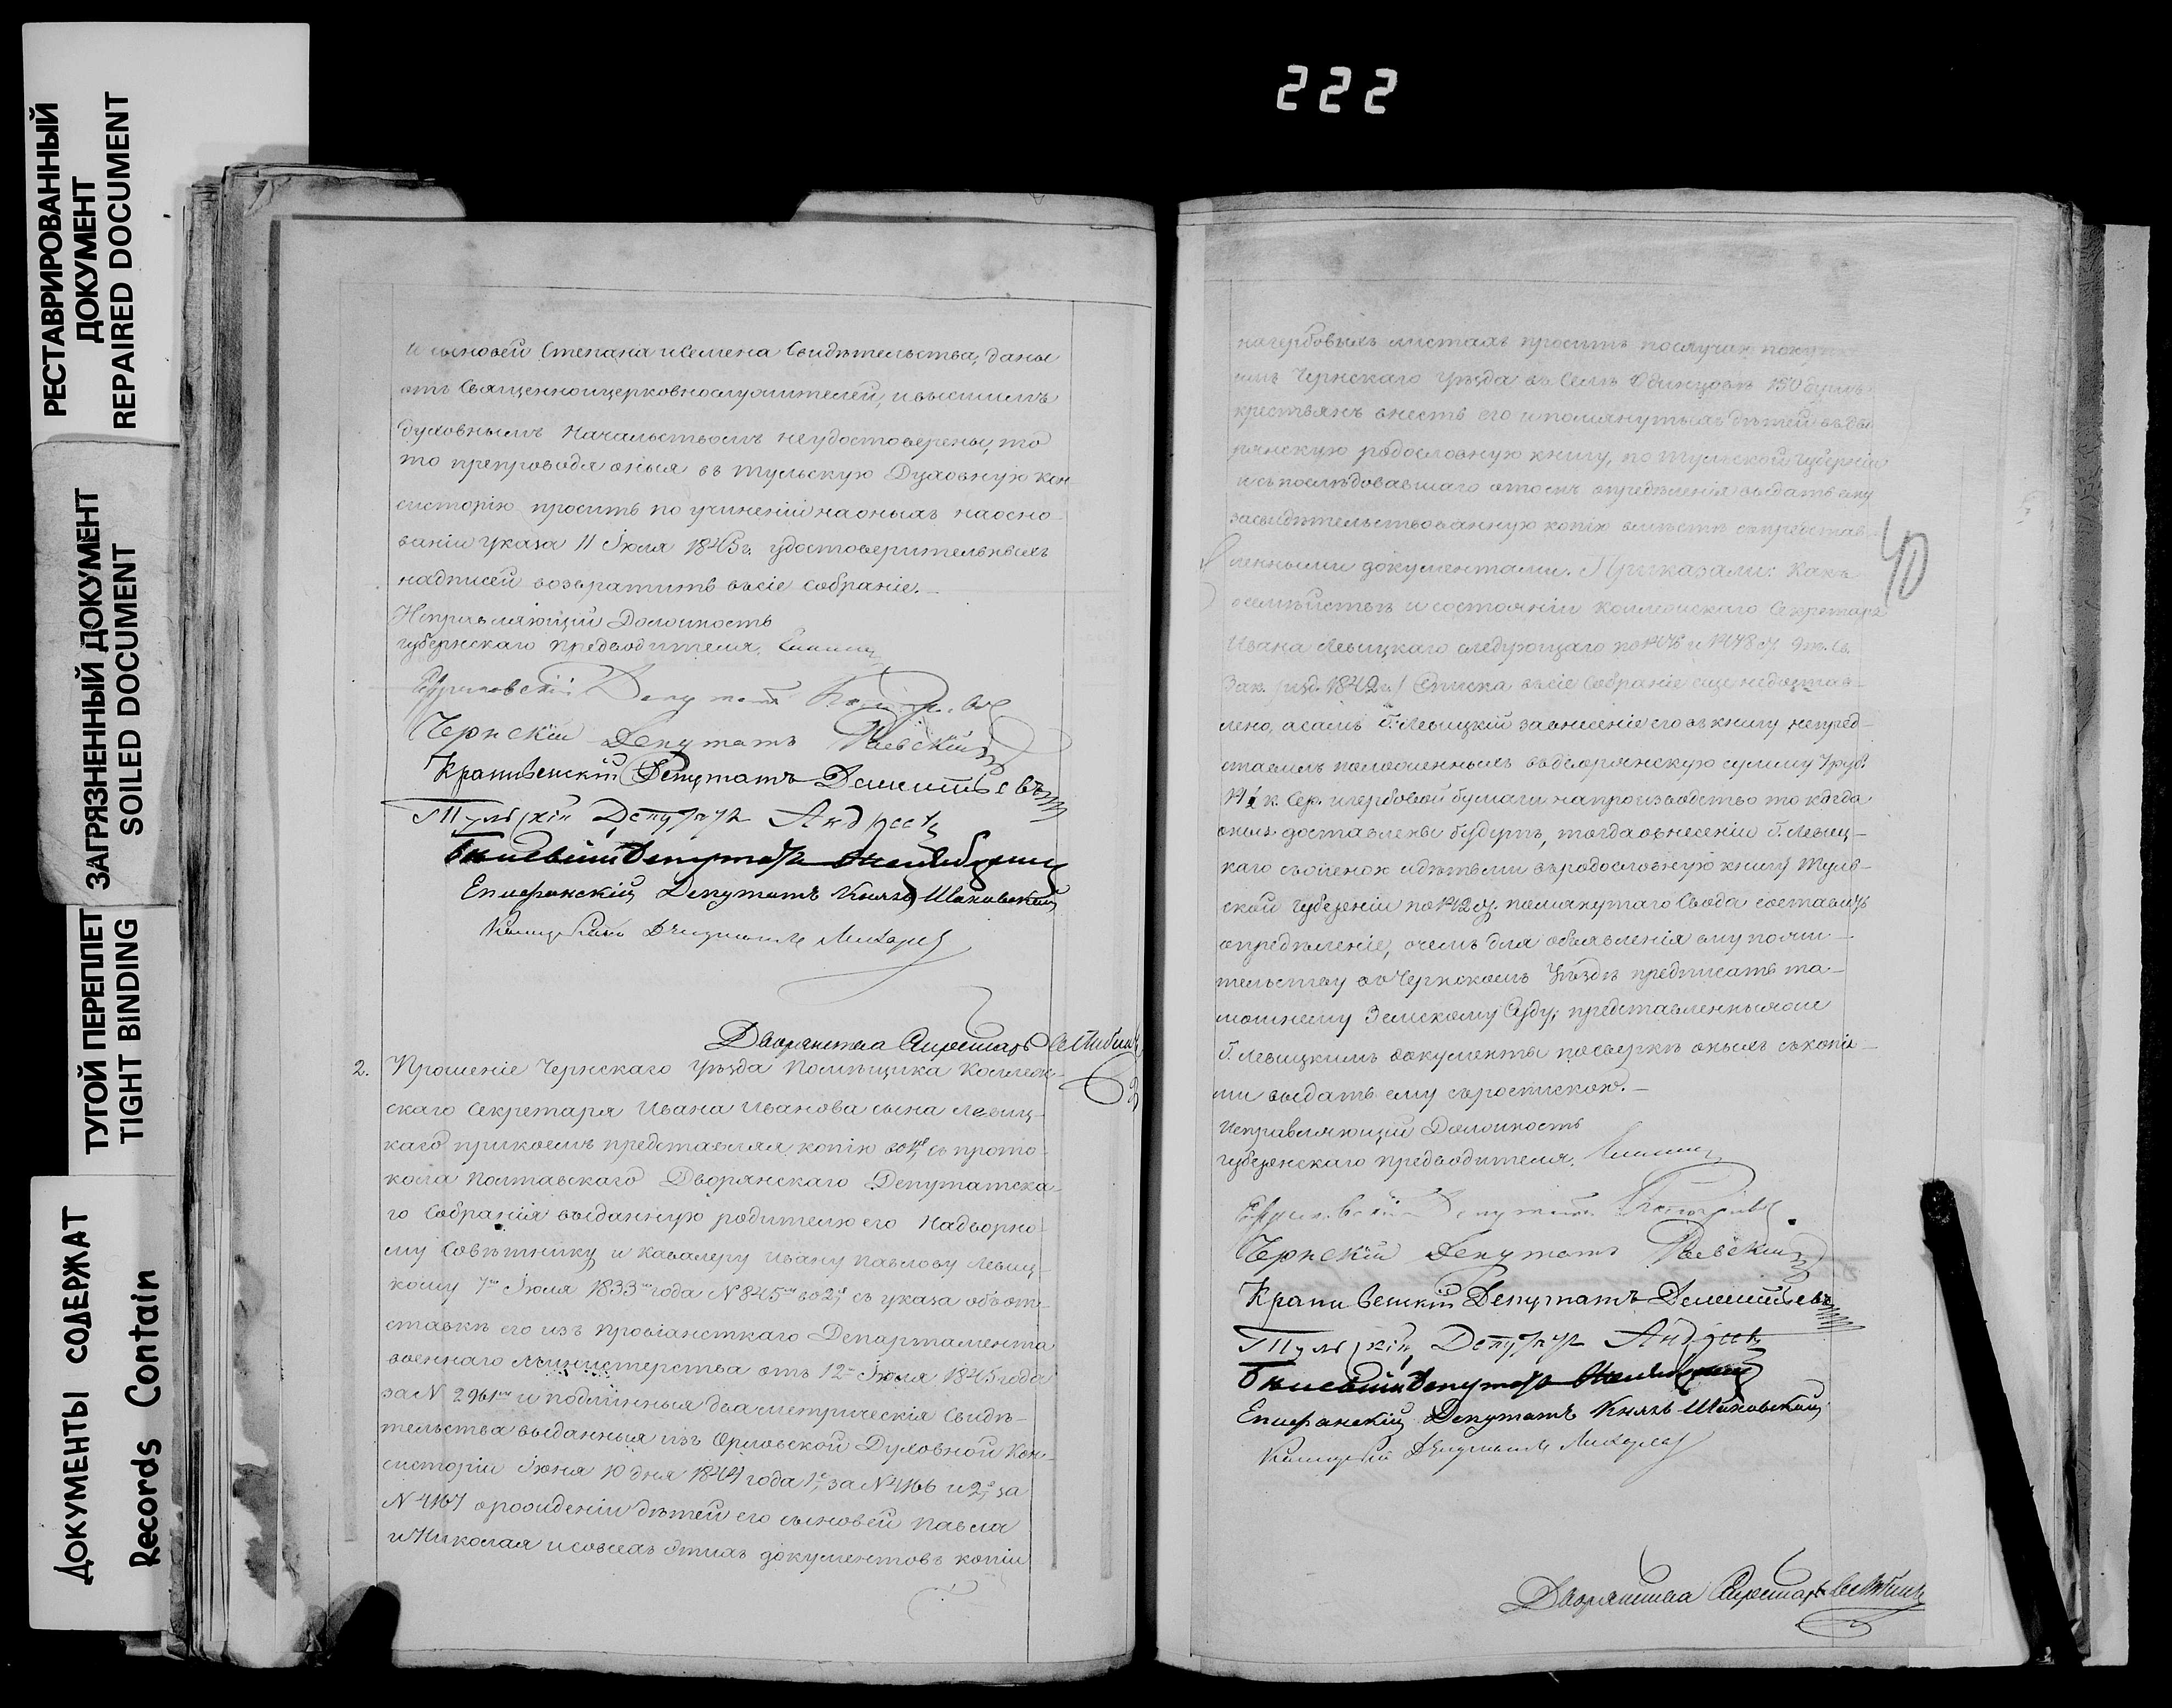 222
РЕСТАВРИРОВАННЫЙ
ДОКУМЕНТ
REPAIRED DOCUMENT
ЗАГРЯЗНЕННЫЙ ДОКУМЕНТ
SOILED DOCUMENT
ТУГОЙ ПЕРЕПЛЕТ
TIGHT BINDING
ДОКУМЕНТЫ СОДЕРЖАТ
Records Contain
и сыновей Степана и Семена Свидѣтельства, даны
отъ Священноицерковнослужителей, и высшимъ
духовнымъ Начальствомъ неудостоверены, то
то препроводя оныя въ Тульскую Духовную Кон
систорію просить по учиненіи наоныхъ наосно-
ваніи указа 11 Іюля 1845г. удостоверительныхъ
надписей возвратить всіе собраніе.
Исправляющій Должность
губернскаго предводителя
Депутатъ
Чернскій Депутатъ Раевскій
Крапивенскій Депутатъ Дементьевъ
Тульскій Депутатъ
Депутатъ
Епифанскій Депутатъ Князь Шаховской
Депутатъ Лихарев
Дворянства Секретарь
2. Прошеніе Чернскаго уѣзда Помѣщика Коллеж-
скаго Секретаря Ивана Иванова сына Левиц-
каго прикоемъ представляя копію во 1х съ прото-
кола Полтавскаго Дворянскаго Депутатска-
го Собранія выданную родителю его Надворно-
му Совѣтнику и Кавалеру Ивану Павлову Левиц-
кому 7го Іюля 1833го года № 845м во 2х съ указа объ от-
ставкѣ его изъ провіантскаго Департамента
военнаго Министерства отъ 12 Іюля 1845 года
за № 2961м и подлинныя два метрическія Свидѣ-
тельства выданныя изъ Орловской Духовной Кон-
систоріи Іюня 10 дня 1844 года 1е за № 4166 и 2е за
№ 4167 орожденіи дѣтей его сыновей Павла
и Николая и совсехъ этихъ документовъ копіи
нагербовыхъ листахъ проситъ послучаю покупки
имъ Чернскаго уѣзда въ Селѣ Одинцовѣ 150 душъ
крестьянъ внесть его и помянутыхъ дѣтей въ дво
рянскую родословную книгу, по Тульской губерніи
и съ послѣдовавшаго отомъ опредѣленія выдать ему
засвидѣтельствованную копію вмѣстѣ съ представ-
ленными документами. Приказали: Какъ
о семѣйствѣ и состояніи Коллежскаго Секретаря
Ивана Левицкаго следующаго по
Зак. (изд. 1842 г.) Списка всіе Собраніе еще недостав-
лено, а самъ Г. Левицкій завнесеніе его въ книгу непред-
ставилъ положенныхъ въ дворянскую сумму
к. Сер. игербовой бумаги напроизводство то когда
оныя доставлены будутъ, тогда овнесеніи Г. Левиц-
каго съ женою и дѣтьми въ родословную книгу Туль-
ской губерніи помянутаго Свода составить
опредѣленіе, о чемъ для объявленія ему пожи-
тельству въ Чернскомъ уѣздѣ предписать та-
мошнему Земскому Суду; представленныя же
Г. Левицкимъ документы посверкѣ оныхъ съ копі-
ями выдать ему съ роспискою.
Исправляющій Должность
губернскаго предводителя.
Депутатъ
Чернскій Депутатъ Раевскій
Крапивенскій Депутатъ Дементьевъ
Тульскій Депутатъ
Депутатъ
Епифанскій Депутатъ Князь Шаховской
Депутатъ Лихарев
Дворянства Секретарь
40